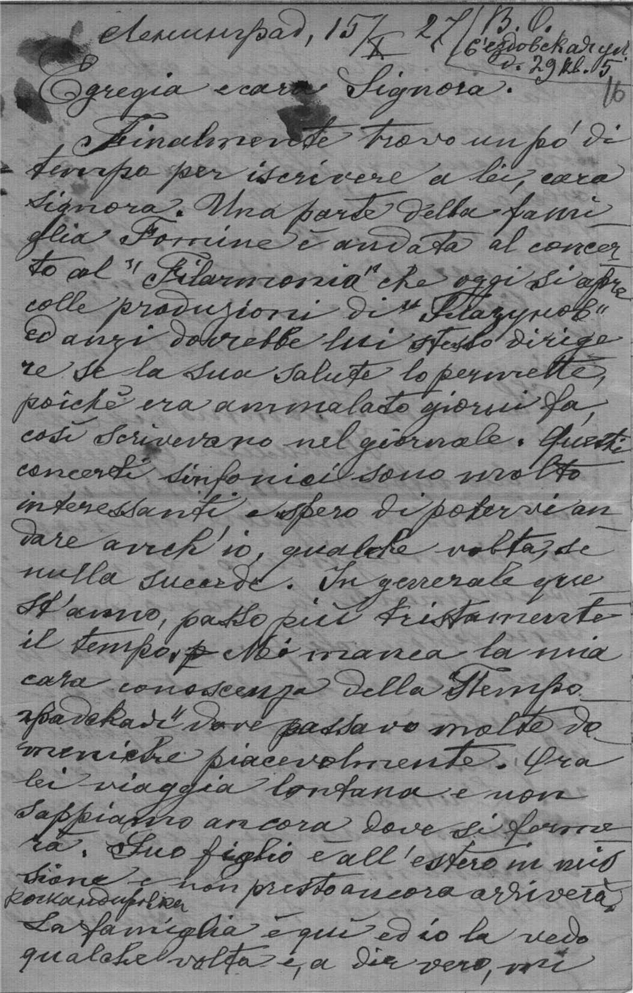 Ленинград, 15/X 27/ В. О.
Съездовская ул
д. 29 кв. 5
16
Egregia e cara Signora.
Finalmente trovo un pó di
tempo per iscrivere a lei, cara
signora. Una parte della fami
glia Fomine è andata al concer
to al "Filarmonia" che oggi si apre
colle produzioni di "Глазунов"
ed anzi dovrebbe lui stesso dirige
re se la sua salute lo permette,
poichè era ammalato giorni fa,
così scrivevano nel giornale. Questi
concerti sinfonici sono molto
interessanti e spero di potervi an
dare anch'io, qualche volta, se
nulla succede. In generale que
st'anno, passo più tristamente
il tempo. Mi manca la mia
cara conoscenza della "Петро
градская" dove passavo molte do
meniche piacevolmente. Ora
lei viaggia lontana e non
sappiamo ancora dove si ferme
rà. Suo figlio è all'estero in mis
sione e non presto ancora arriverà.
командировка
La famiglia è quì ed io la vedo
qualche volta e, a dir vero, mi